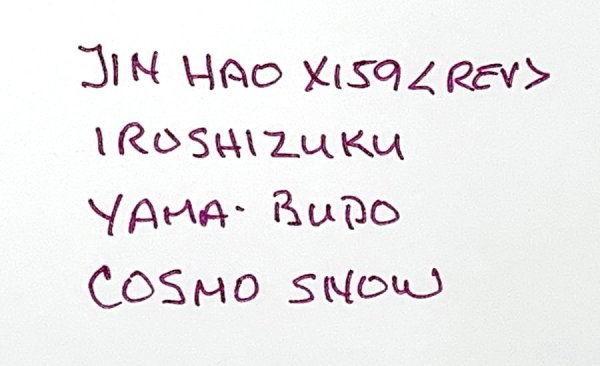 JIN HAO X159 <REV>
IROSHIZUKU
YAMA-BUDO
COSMO SNOW